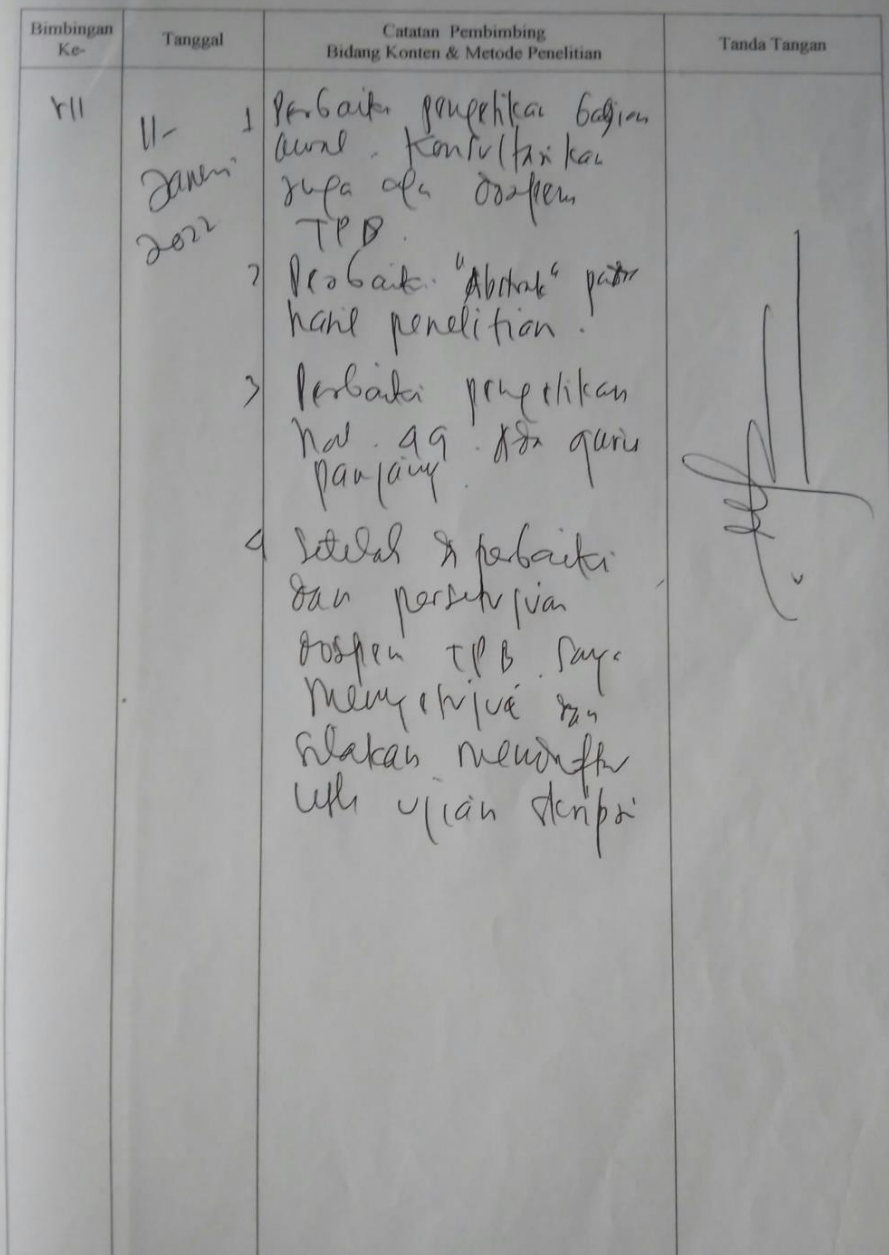 Bimbingan
Ke-
Tanggal
Catatan Pembimbing
Bidang Konten & Metode Penelitian
Tanda Tangan
VII
11-
Januari
2022
1 Perbaiki pengetikan bagian
awal. Konsultasikan
juga dgn dospem
TPB.
2 Perbaiki "Abstrak"
hasil penelitian.
3 Perbaiki pengetikan
hal. 49. garis
panjang.
4 Setelah diperbaiki
dan persetujuan
dospem TPB saya
menyetujui dan
silakan mendaftar
utk ujian skripsi